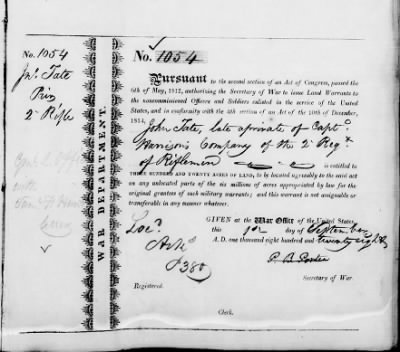 No. 1054
Jno. Tate
Priv
2d Rifle
WAR DEPARTMENT.
No. 1054
Pursuant to the second section of an Act of Congress, passed the
6th of May, 1812, authorising the Secretary of War to issue Land Warrants to
the noncommissioned Officers and Soldiers enlisted in the service of the United
States, and in conformity with the 4th section of an Act of the 10th of December,
1814, John Tate, late a private of Captn
Harrison's Company of the 2d Regt
of Riflemen is entitled to
THREE HUNDRED AND TWENTY ACRES OF LAND, to be located agreeably to the said act on
any unlocated parts of the six millions of acres appropriated by law for the
original grantees of such military warrants; and this warrant is not assignable or
transferable in any manner whatever.
GIVEN at the War Office of the United States,
this 1st day of September
A.D. one thousand eight hundred and twenty eight
P. B. Porter
Secretary of War.
Locd
Arks
380
Registered.
Clerk.